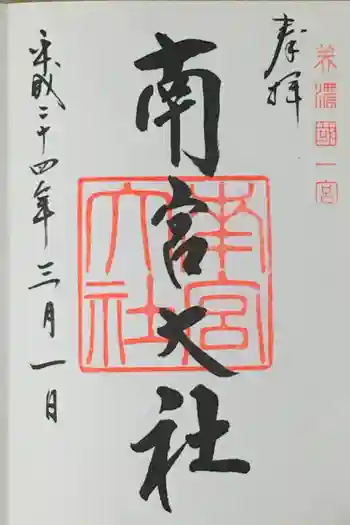 美濃國一宮
奉拝
南宮大社
南宮大社
平成二十四年三月一日